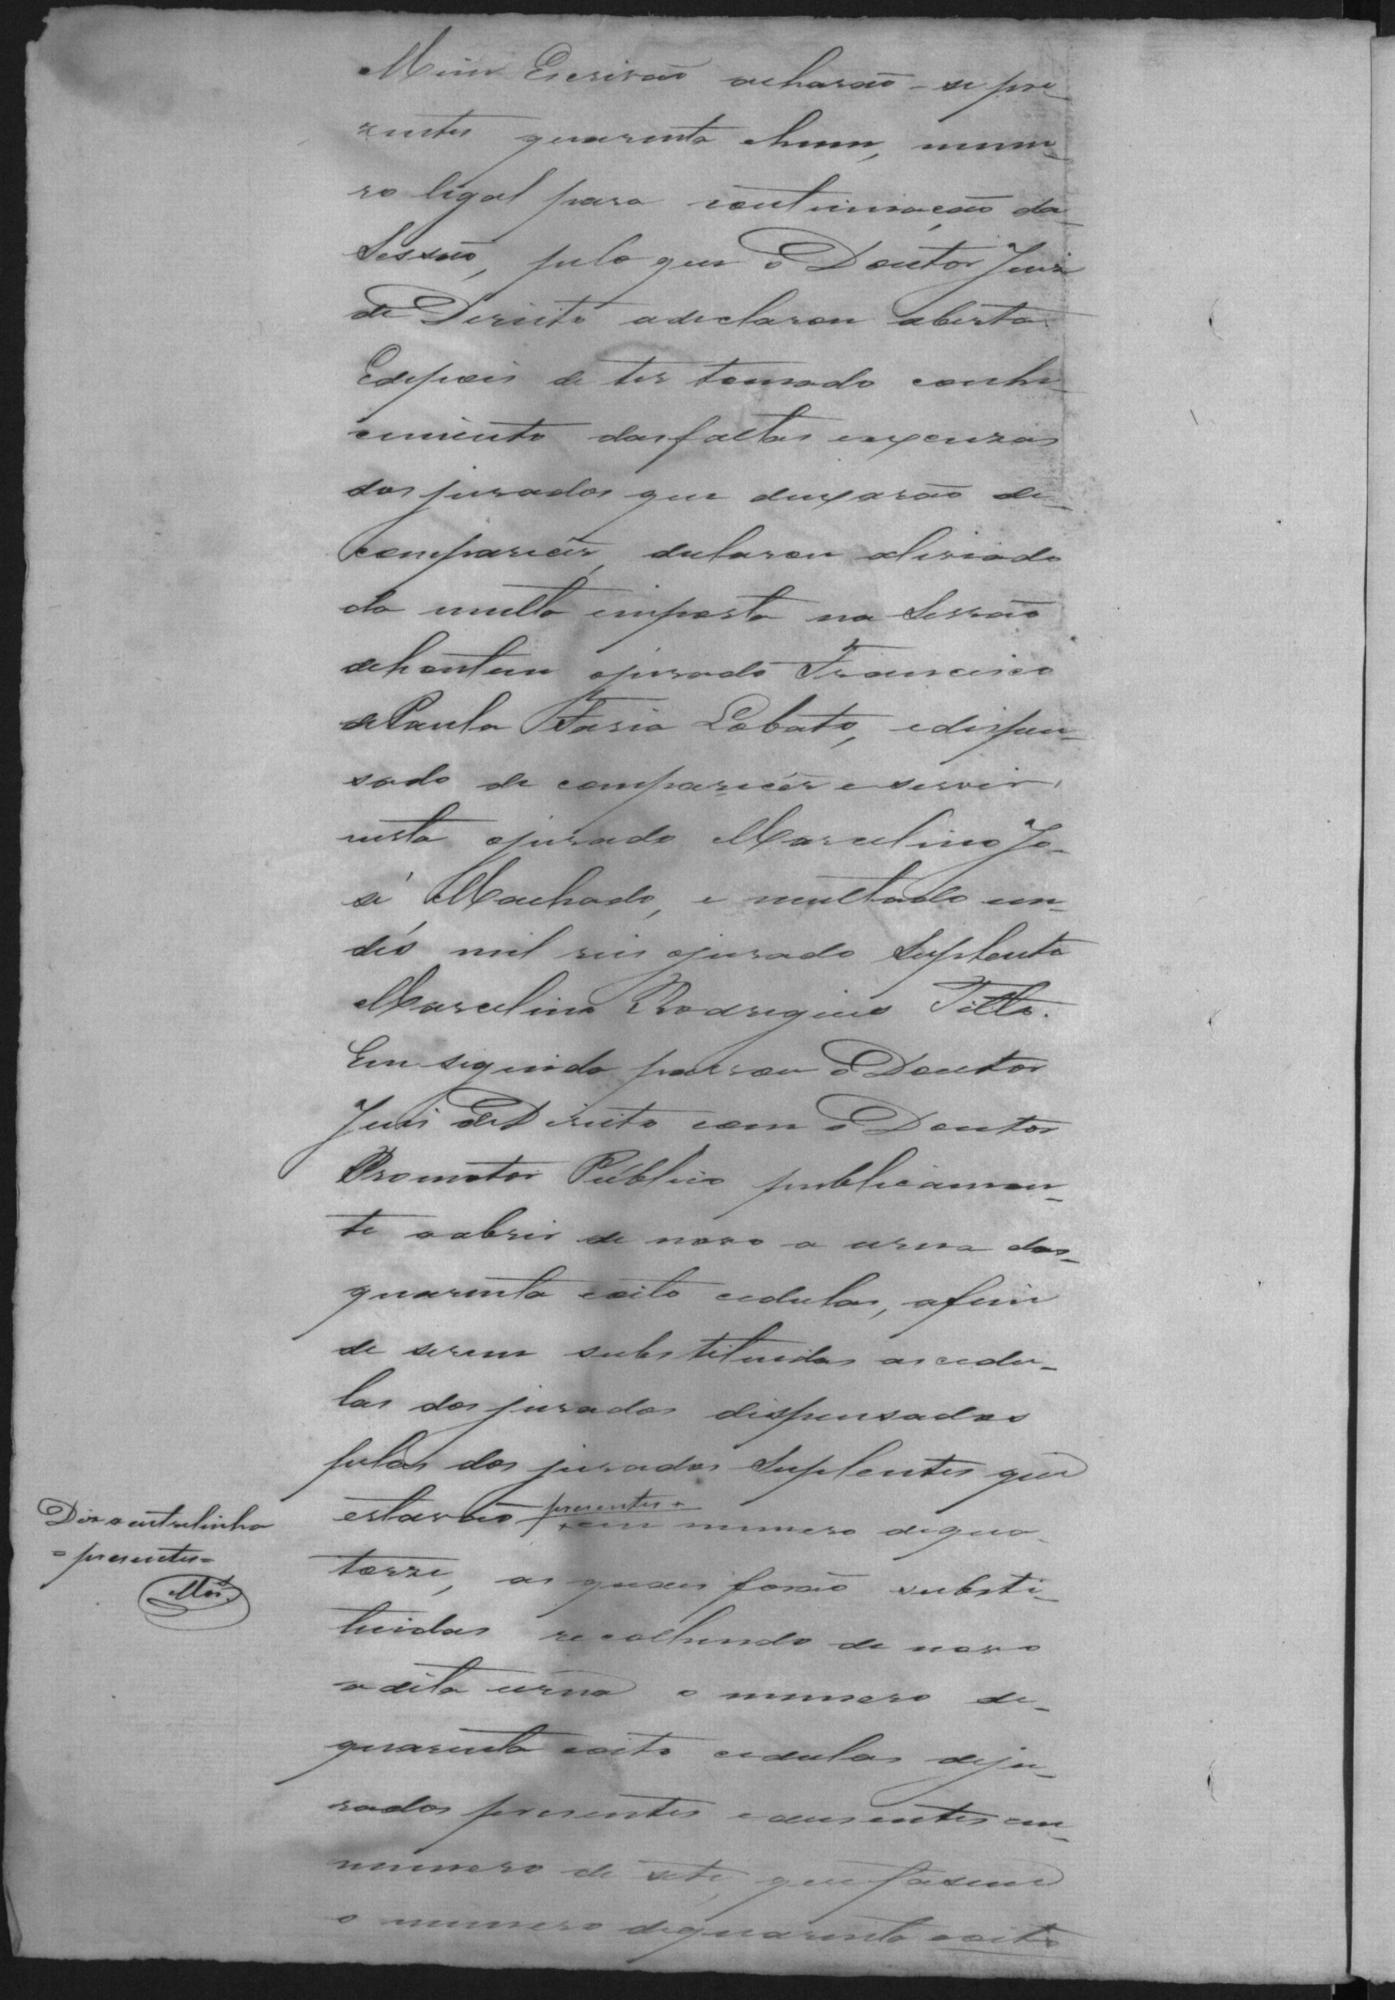 Mim Escrivão acharão-se pre-
zentes quarenta ehum, nume-
ro legal para continuação da
Sessão, pelo que o Doutor Juis
de Direito adeclarou aberta.
Edepois de ter tomado conhe-
cimento dasfaltas eexcuzas
dos jurados que deixarão de
comparecer, declarou aliviado
da multa imposta na Sessão
dehontem ojurado Francisco
de Paula Faria Lobato, edispen-
sado de comparecer e servir
nesta ojurado Marcelino Jo-
sé Machado, e multado em
dés mil reis ojurado Suplente
Marcelino Rodrigues Titto.
Em seguida passou o Doutor
Juis de Direito com o Doutor
Promotor Publico publicamen-
te a abrir de novo a urna das
quarenta eoito cedulas, afim
de serem substituidas as cedu-
las dos jurados dispensados
pelas dos jurados Suplentes que
estavão presentes em numero dequa-
torze, as quaes forão substi-
tuidas recolhendo de novo
a dita urna o numero de
quarenta eoito cedulas deju-
rados presentes e ausentes em
numero de sete, que fasem
o numero dequarenta eoito
Diz a entrelinha
=presentes=